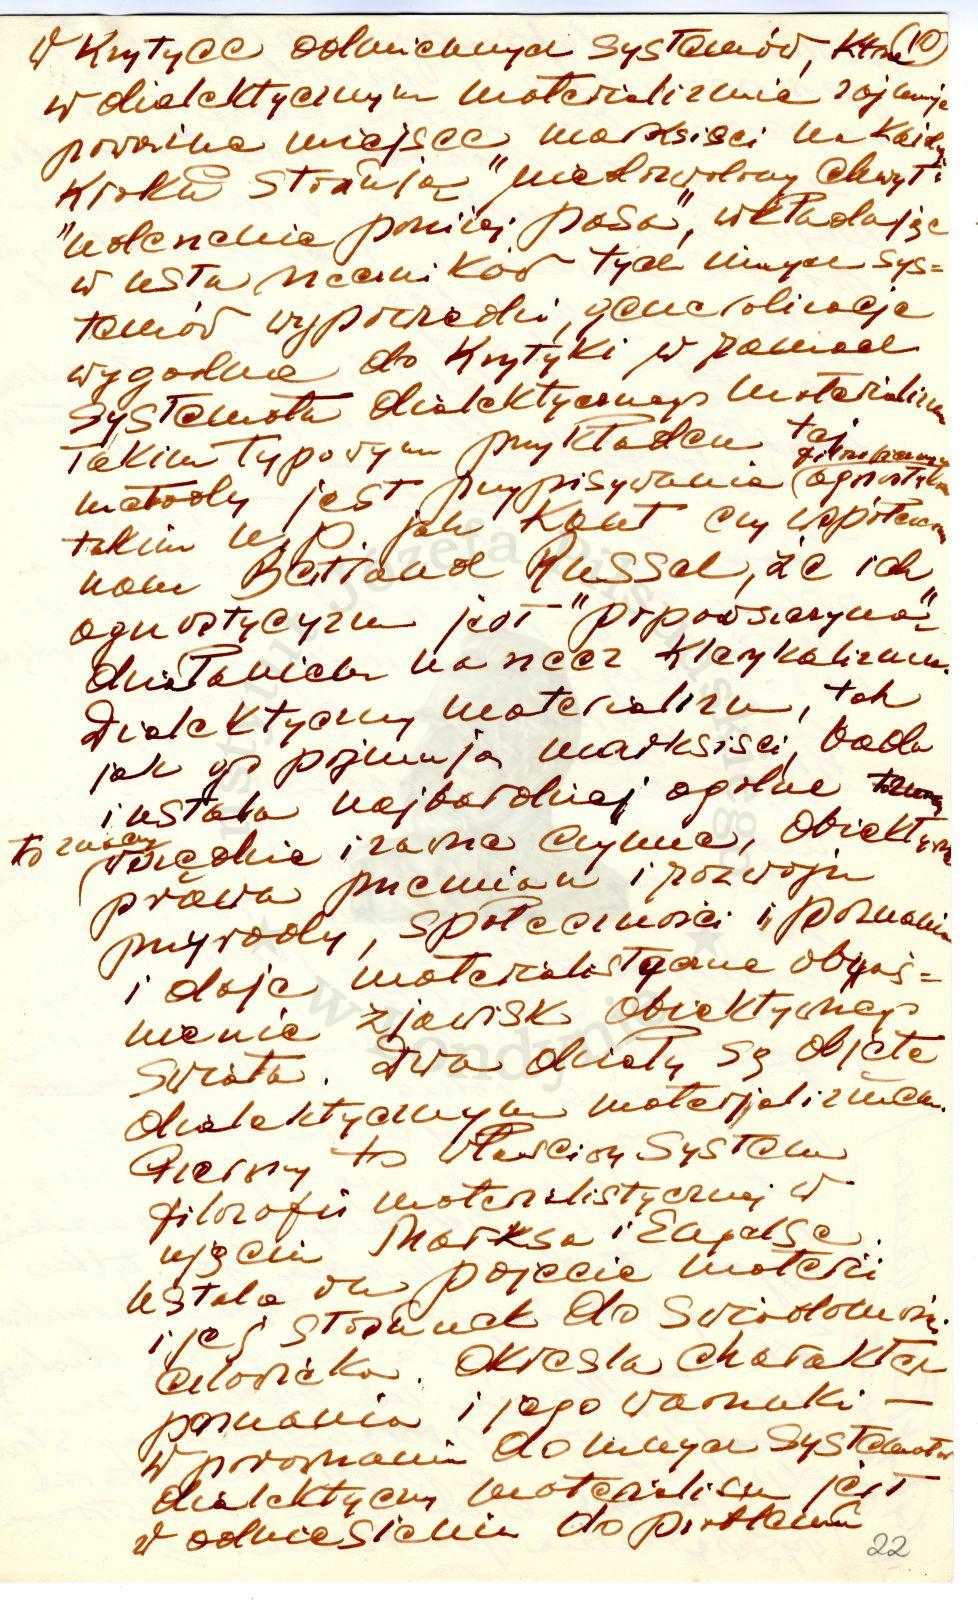 (10)
W Krytyce odmiennych systemów, które
w dialektycznym materializmie zajmują
poważne miejsce marksiści na każdym
Kroku stosują "niedozwolony chwyt i
"uderzenie poniżej pasa", wkładając
w usta rzeczników tych innych sys=
temów wypowiedzi, generalizacje
wygodne do Krytyki w ramach
systematu dialektycznego materializmu
Takim typowym przykładem tej
metody jest przypisywanie agnostykom
takim n.p. jak Kant czy współczes
nam Bertrand Russel, że ich
agnostycyzm jest "
działaniem na rzecz Klerykalizmu.
Dialektyczny materializm, tak
jak go pojmują marksiści, bada
i ustala najbardziej ogólne
to znaczy
wszędzie i zawsze czynne, obiektywne
prawa przemian i rozwoju
przyrody, społeczności i poznania
i daje materialistyczne objaś=
nienie zjawisk obiektywnego
świata. Dwa działy są objęte
dialektycznym materjalizmem.
Pierwszy to właściwy system
filozofii materialistycznej w
ujęciu Marksa i Engelsa.
Ustala on pojęcie materii
i jej stosunek do świadomości
człowieka. Określa charakter
poznania i jego warunki —
w porównaniu do innych systematów
dialektyczny materializm jest
w odniesieniu do problemu
22
Instytut Józefa Piłsudskiego
w Londynie